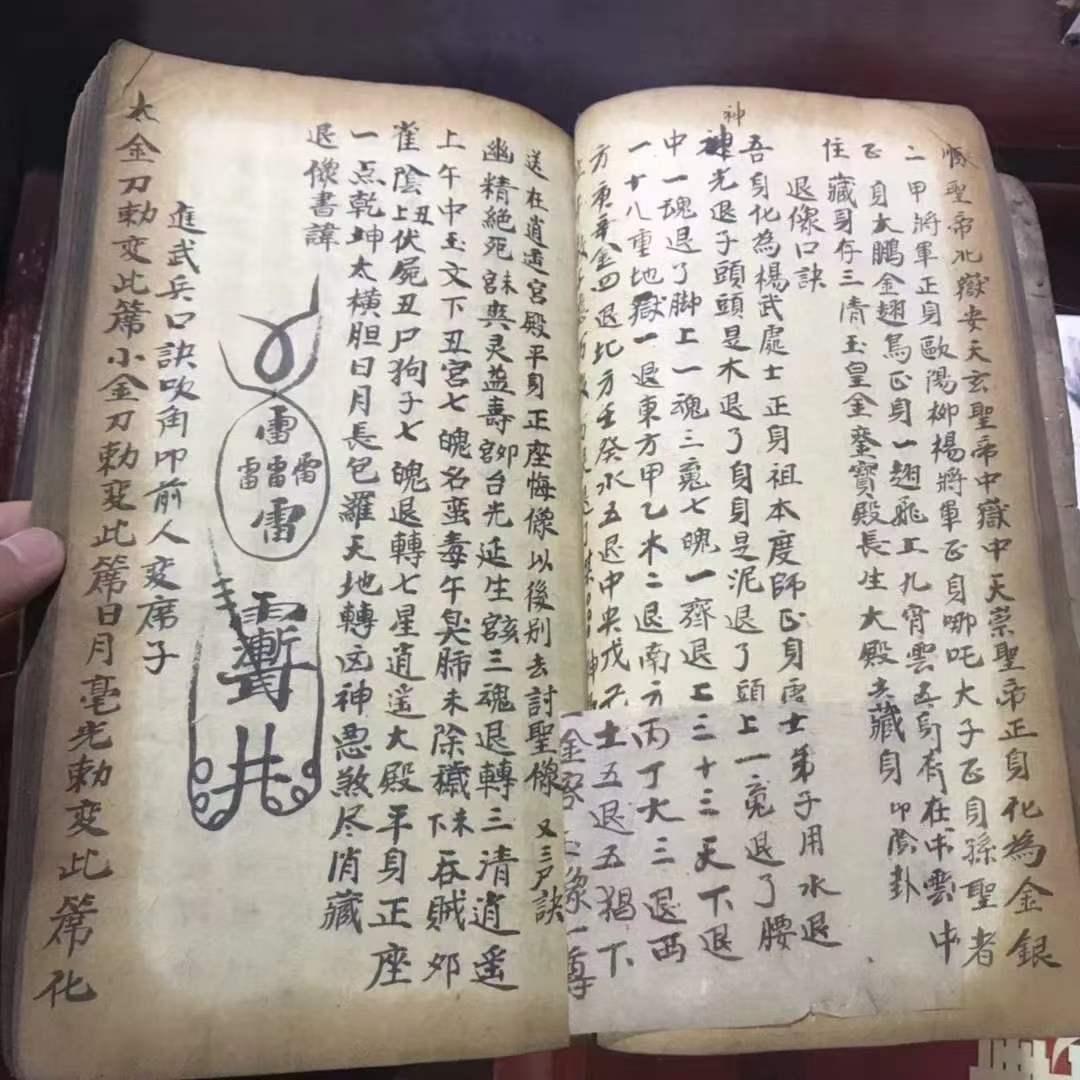 聖帝北嶽安天玄聖帝中嶽中天崇聖帝正身化為金銀
二甲將軍正身歐陽柳楊將軍正身哪吒大子正身孫聖者
正身大鵬金翅鳥正身一翅飛上九宵雲吾身存在中雲中
住藏身存三清玉皇金鑾寳殿長生大殿去藏身卬陰卦
退像口訣
吾身化為楊武處士正身祖本度師正身雷士第子用水退
神
神光退子頭頭是木退了身身是泥退了頭上一䰟退了腰
中一魂退了脚上一魂三䰟七魄一齊退上三十三天下退
一十八重地獄一退東方甲乙木二退南方丙丁火三退西
方庚辛金四退北方壬癸水五退中央戊己土五退五猖下
送在逍遥宮殿平身正座悔像以後别去討聖像 又三尸訣
幽精絶死宮未與灵益壽宮卯台光延生宮亥三魂退轉三清逍遥
上午中玉文下丑宮七魄名蛮毒午臭肺未除穢未下吞賊夘
雀陰丑上伏屍丑尸狗子七魄退轉七星逍遥大殿平身正座
一点乾坤太橫胆日月長包羅天地轉凶神惡煞尽消藏
退像書諱
雷
雷雷雷
雷
井
進武兵口訣吹角卬前人变席子
太金刀勅变此篇小金刀勅变此篇日月毫光勅变此篇化